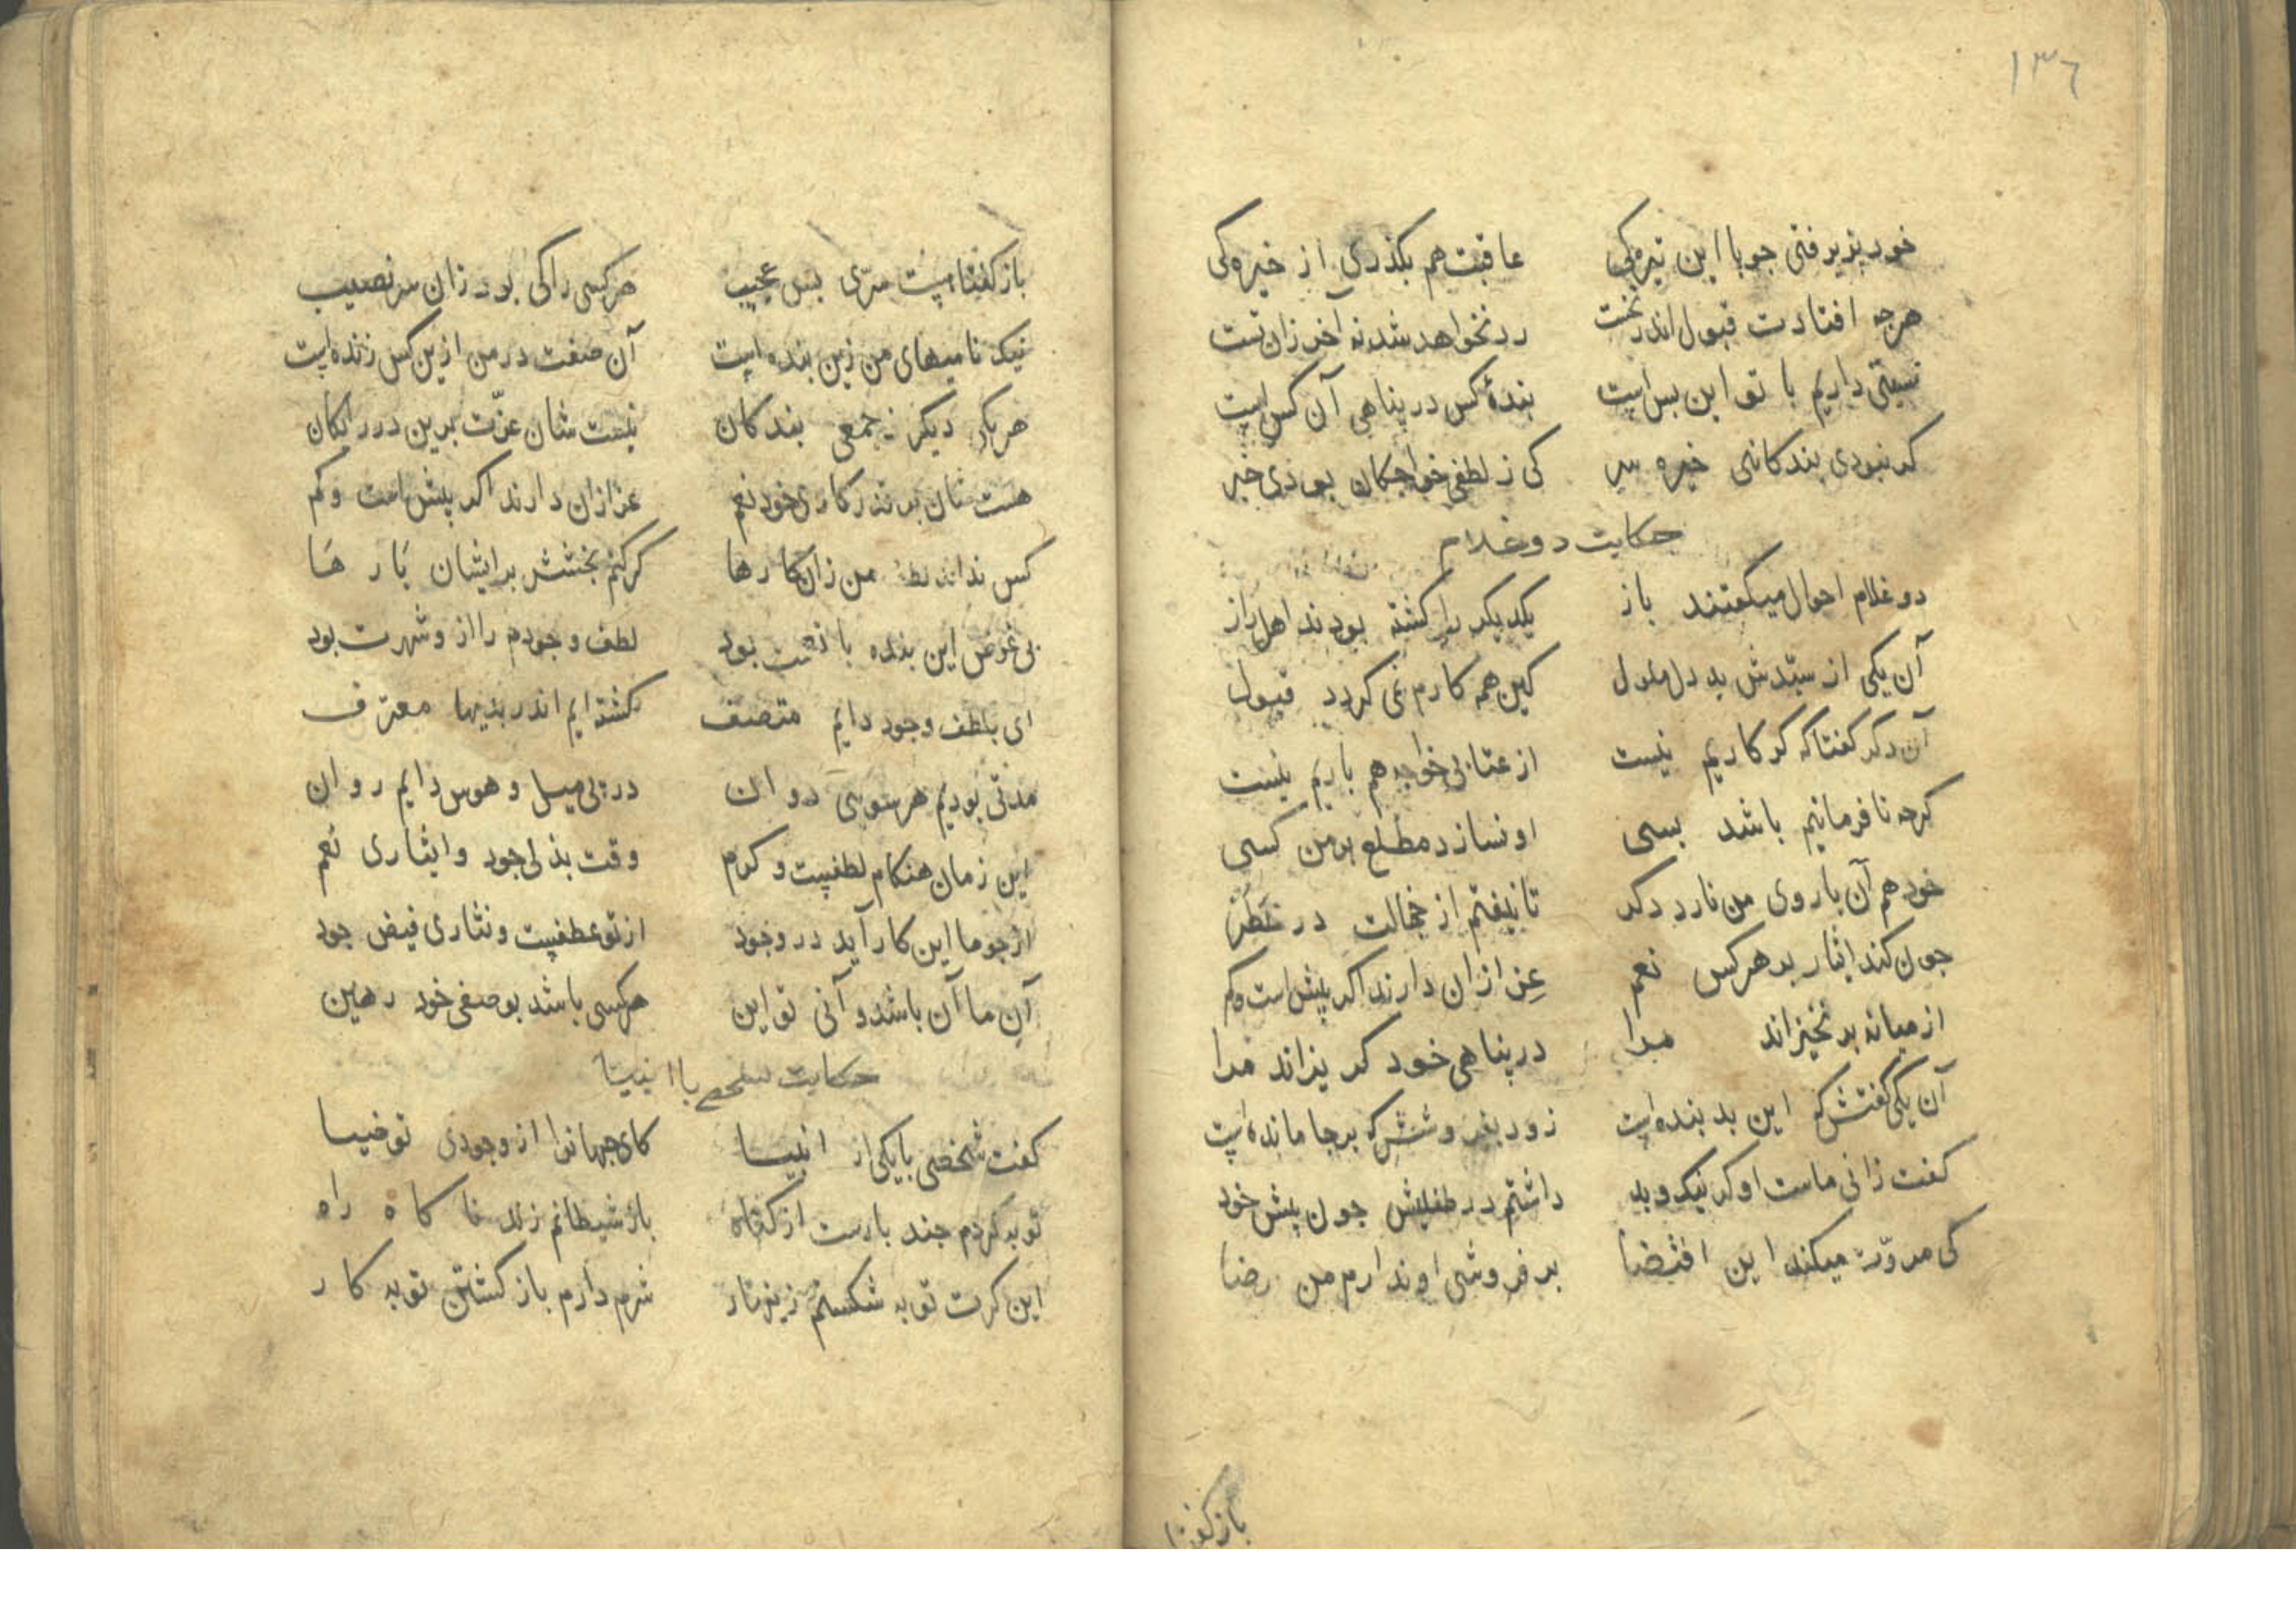 ۱۳٦
خود بذیرفتی جو با این تیرکی عاقبت هم بکذری از خیرکی
هرجه افتادت قبول اندر نخست رد نخواهد شد نه آخر زان تست
نسبتی داریم با تو این بس است بندهٔ کس در پناهی آن کس است
کر نبودی بندکانی خیره سر کی ز لطفی خواجکان بوذی خبر
حکایت دو غلام
دو غلام احوال میکفتند باز یکدیکر را کشته بودند اهل راز
آن یکی از سیّدش بد دل ملول کین همه کارم نمی کردد قبول
آن دکر کفتا که کر کاریم نیست از عتابی خواجه هم باریم نیست
کرجه نافرمانیم باشد بسی او نسازد مطلع بر من کسی
خود هم آن با روی من نارد دکر تا نیفتم از خجالت در خطر
جون کند ایثار بر هر کس نعم عز ازان دارند اکر بیش است و کم
از میانه بر نخیزاند مرا در پناهی خود کریزاند مرا
آن یکی کفتش که این بد بنده است زود بفروشش که برجا مانده است
کفت زانی ماست او کر نیک و بد داشتم در طفلیش جون بیش خود
کی مروّت میکند این اقتضا بر فروشی او ندارم من رضا
باز کفتا
باز کفتا هست سرّی بس عجیب هر کسی را کی بود زان سر نصیب
نیک نامیهای من زین بنده است آن صفت در من ازین کس زنده است
هر یکی دیکر ز جمعی بندکان نیست شان عزّت برین در رایکان
هست شان بر قدر کاری خود نعم عز ازان دارند اکر بیش است و کم
کس نداند لطف من زان کارها کر کنم بخشش بر ایشان بارها
بی غرض این بنده با بود لطف وجودم را ازو شهرت بود
ای بلطف وجود دایم متصف کشته ایم اندر بذیها معترف
مدتی بودیم هر سویی دوان در بی میل و هوس دایم روان
این زمان هنکام لطفیست و کرم وقت بذلی جود و ایثاری نعم
از جو ما این کار آید در وجود از تو عطفیست و نثاری فیض جود
آنِ ما آن باشد و آنی تو این هر کسی باشد بوصفی خود رهین
حکایت شخصی با انبیا
کفت شخصی با یکی از انبیا کای جهانرا از وجودی تو ضیا
توبه کردم جند بارست از کناه باز شیطانم زند ناکاه راه
این کرت توبه شکستم زینهار شرم دارم باز کشتن توبه کار